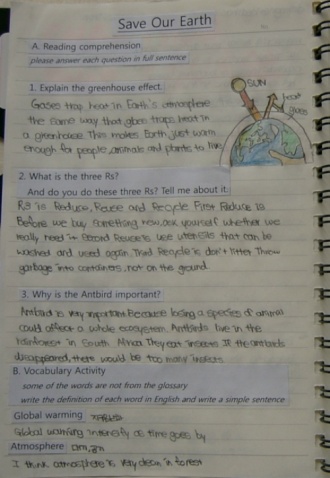 Save Our Earth
A. Reading comprehension
please answer each question in full sentence
1. Explain the greenhouse effect.
SUN
heat
gases
Gases trap heat in Earth's atmosphere
the same way that glass traps heat in
a greenhouse This makes Earth just warm
enough for people, animals and plants to live
2. What is the three Rs?
And do you do these three Rs? Tell me about it.
Rs is Reduce, Reuse and Recycle First Reduce is
Before we buy something new, ask yourself whether we
really need it Second Reuse is use utensils that can be
washed and used again Third Recycle is don't litter Throw
garbage into containers, not on the ground
3. Why is the Antbird important?
Antbird is very important Because losing a species of animal
could affect a whole ecosystem. Antbirds live in the
rainforest in South Africa They eat insects If the antbirds
disappeared, there would be too many insects
B. Vocabulary Activity
some of the words are not from the glossary
write the definition of each word in English and write a simple sentence
Global warming
Global warming intensify as time goes by
Atmosphere
I think atmosphere is very clean in forest